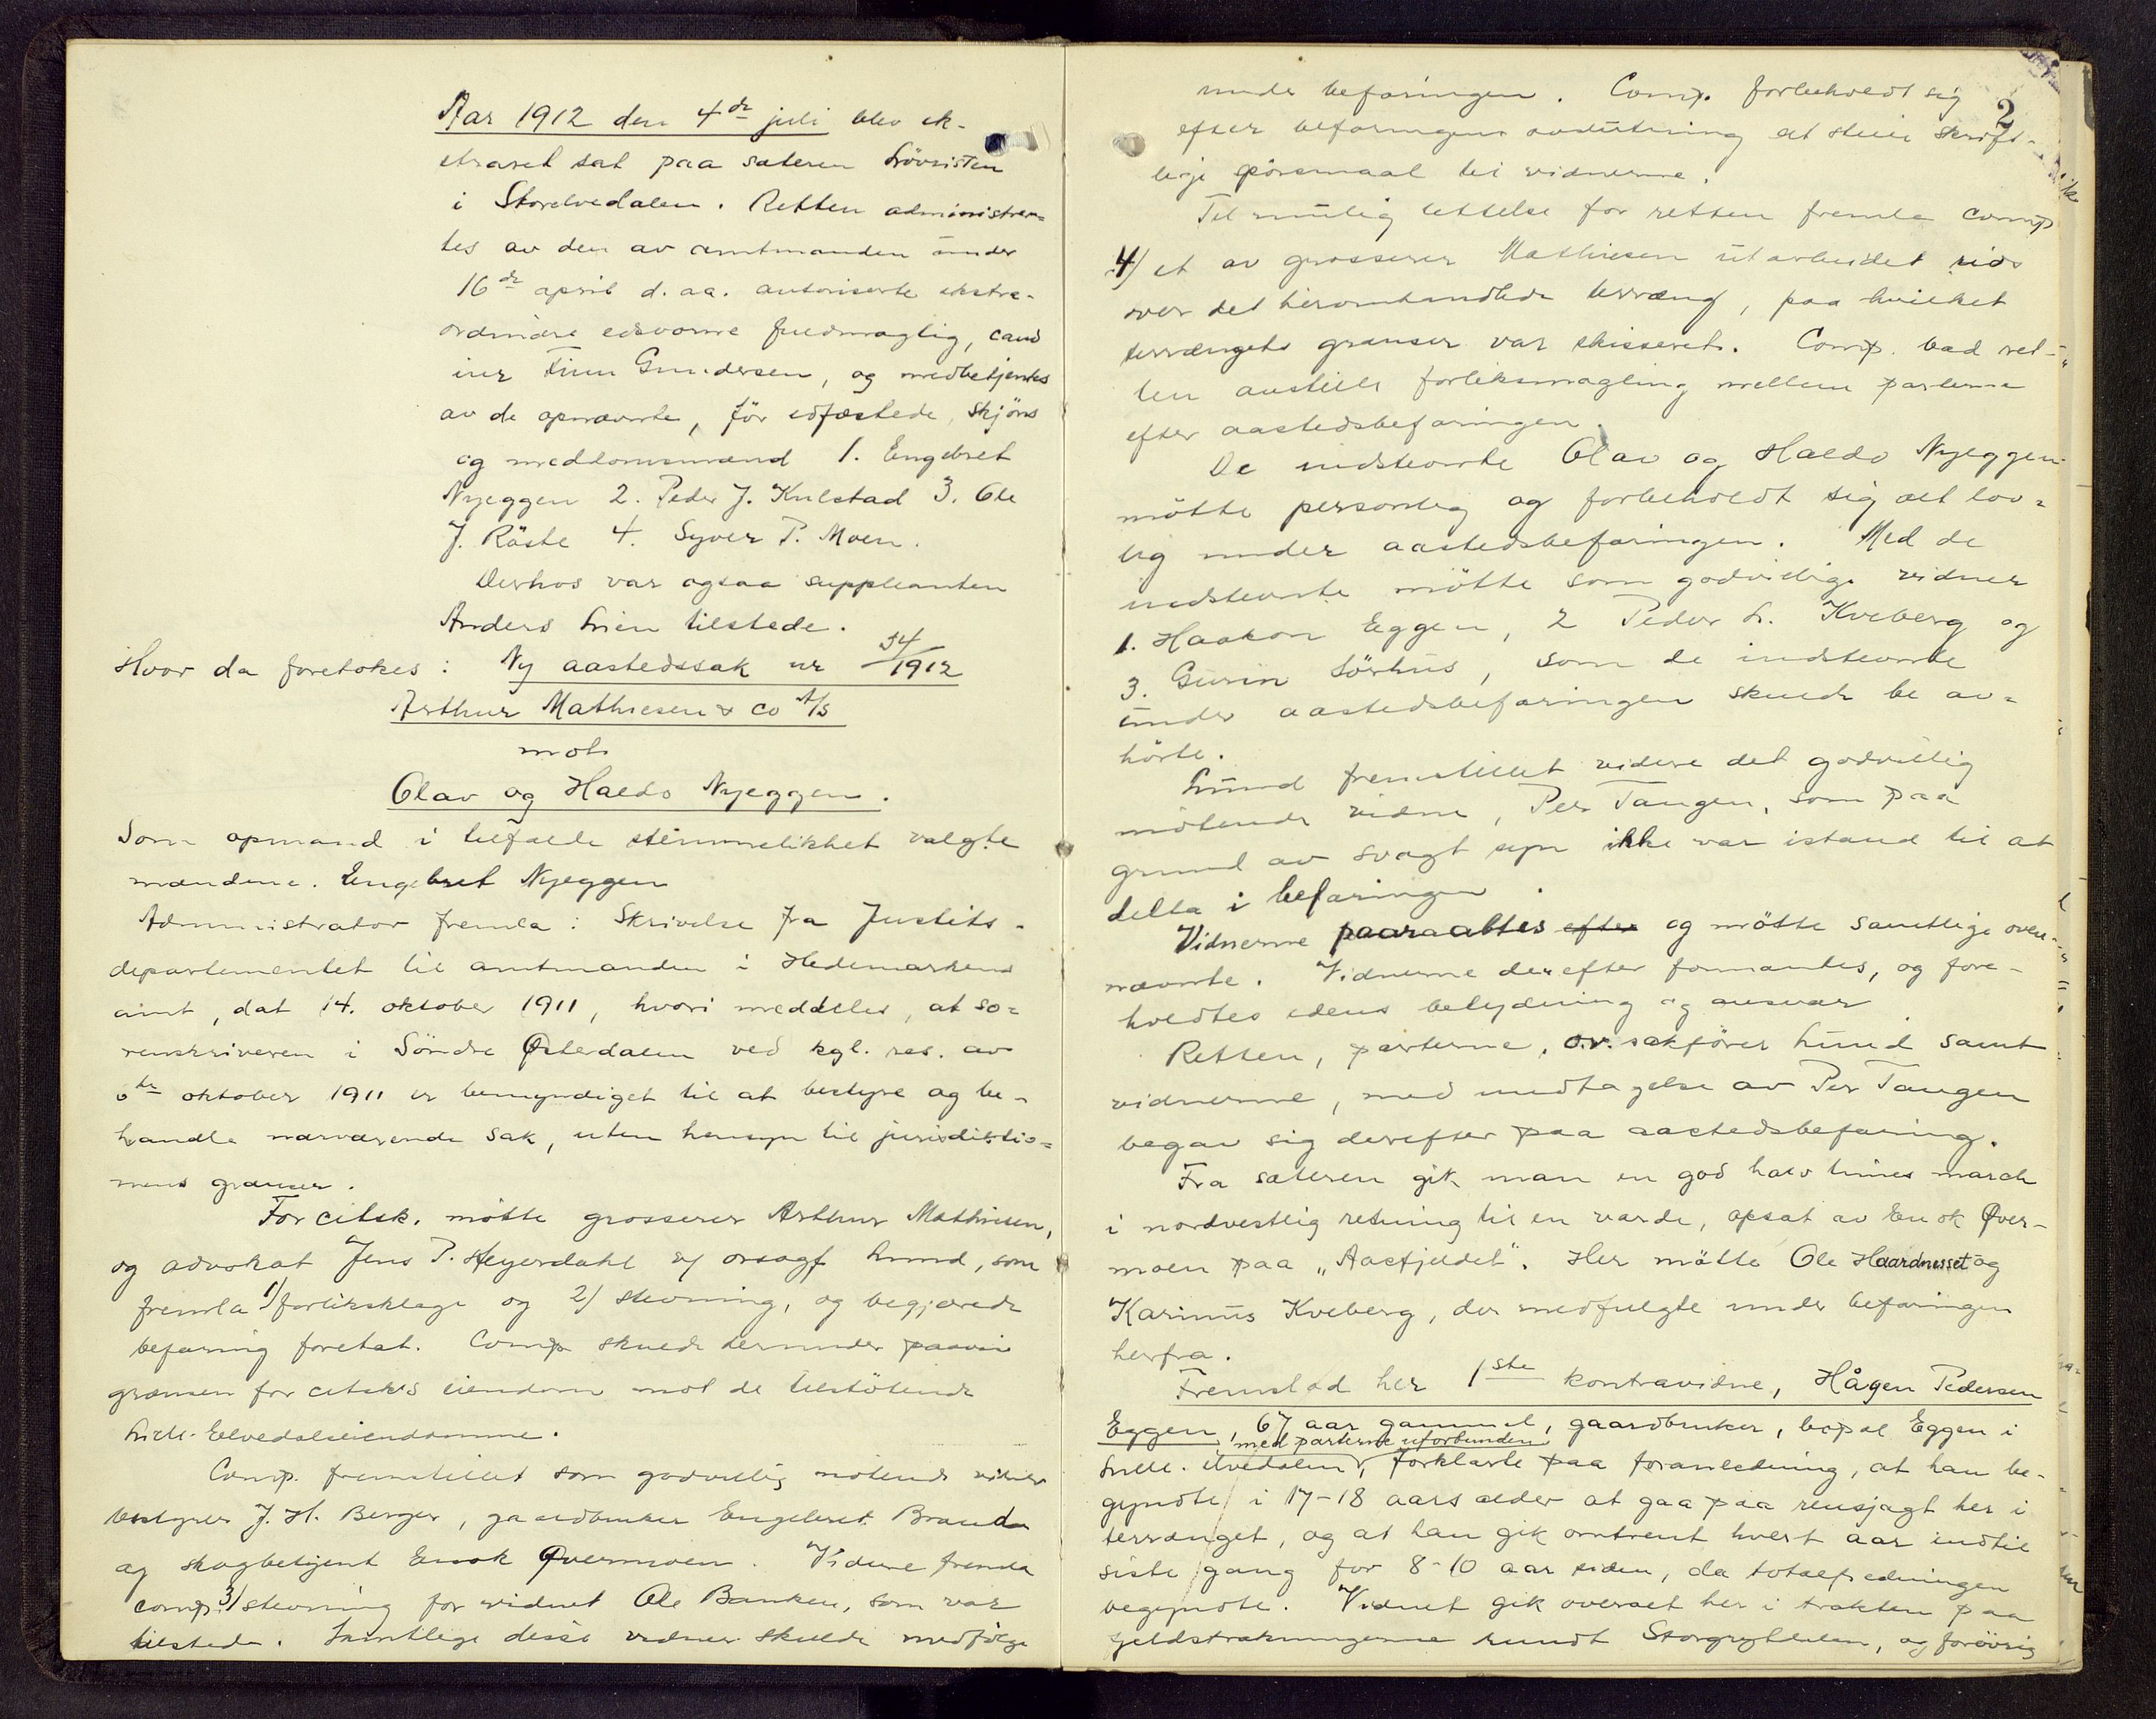 Aar 1912 den 4de juli blev ek-
straret sat paa sæteren Lövristen
i Storelvedalen. Retten administrer-
tes av den av amtmanden under
16de april d.aa. autoriserte ekstra-
ordinære edsvorne fuldmægtig, cand
iur Finn Gundersen, og medbetjentes
av de opnævnte, för edfæstede, skjöns
og meddomsmænd 1. Engebret
Nyeggen 2. Peder J. Kulstad 3. Ole
J. Röste 4. Syver P. Moen.
Derhos var ogsaa suppleanten
Anders Lien tilstede.
Hvor da foretokes: Ny aastedssak nr 34/1912
Arthur Mathiesen & Co A/S
mot
Olav og Haldo Nyeggen.
Som opmand i tilfælde stemmelikhet valgte
mændene. Engebret Nyeggen
Administrator fremla: Skrivelse fra Justits-
departementet til amtmanden i Hedemarkens
amt, dat 14. oktober 1911, hvori meddeles, at so-
renskriveren i Söndre Østerdalen ved kgl. res. av
6te oktober 1911 er bemyndiget til at bestyre og be-
handle nærværende sak, uten hensyn til jurisdiktio-
nens grænser.
For citsk. mötte grosserer Arthur Mathiesen,
og advokat Jens P. Heyerdahl v/ orsagf. Lund, som
fremla 1) forliksklage og 2) stevning, og begjærede
befaring foretat. Comp skulde herunder paavise
grænsen for citsk's eiendom mot de tilstötende
Lille-Elvedalseiendomme.
Comp. fremstillet som godvillig mötende vidner
bestyrer J. H. Berger, gaardbruker Engebret Brænda
og skogbetjent Enok Øvermoen. Videre fremla
comp. 3) stevning for vidnet Ole Banken, som var
tilstede. Samtlige disse vidner skulde medfölge
2
under befaringen. Comp. forbeholdt sig
efter befaringens avslutning at stille skrift-
lige spörsmaal til vidnerne.
Til mulig lettelse for retten fremla comp
4) et av grosserer Mathiesen utarbeidet rids
over det heromhandlede terræng, paa hvilket
terrængets grænser var skisseret. Comp. bad ret-
ten anstille forliksmægling mellem parterne
efter aastedsbefaringen.
De indstevnte Olav og Haldo Nyeggen
mötte personlig og forbeholdt sig alt lov-
lig under aastedsbefaringen. Med de
indstevnte mötte som godvillige vidner
1. Haakon Eggen, 2 Peder L. Kveberg og
3. Gurin Sörhus, som de indstevnte
under aastedsbefaringen skulde be av-
hörte.
Lund fremstillet videre det godvillig
mötende vidne, Per Tangen, som paa
grund av svagt syn ikke var istand til at
delta i befaringen.
Vidnerne paaraabtes efter og mötte samtlige oven-
nævnte. Vidnerne derefter formantes, og fore-
holdtes edens betydning og ansvar.
Retten, parterne, o.r. sakförer Lund samt
vidnerne, med undtagelse av Per Tangen
begav sig derefter paa aastedsbefaring.
Fra sæteren gik man en god halv times march
i nordvestlig retning til en varde, opsat av Enok Øver-
moen paa "Aasfjeldet". Her mötte Ole Haardnesset og
Karinus Kveberg, der medfulgte under befaringen
herfra.
Fremstod her 1ste kontravidne, Hågen Pedersen
Eggen, 67 aar gammel, gaardbruker, bopæl Eggen i
med parterne uforbunden
Lille-Elvedalen, forklarte paa foranledning, at han be-
gyndte i 17-18 aars alder at gaa paa rensjagt her i
terrænget, og at han gik omtrent hvert aar indtil
siste gang for 8-10 aar siden, da totalfredningen
begyndte. Vidnet gik overalt her i trakten paa
fjeldstrækningerne rundt Storgrytdalen, og forövrig